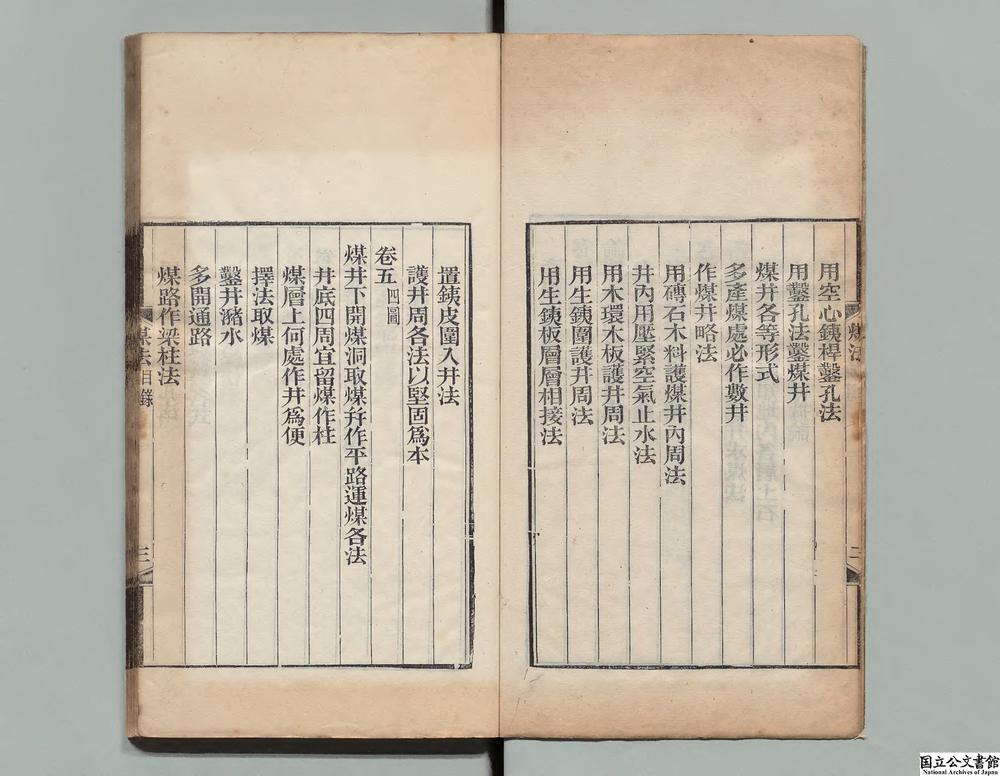 用空心銕桿鑿孔法
用鑿孔法鑿煤井
煤井各等形式
多產煤處必作數井
作煤井略法
用磚石木料護煤井內周法
井內用壓緊空氣止水法
用木環木板護井周法
用生銕圍護井周法
用生銕板層層相接法
置銕皮圍入井法
護井周各法以堅固爲本
卷五 四圖
煤井下開煤洞取煤幷作平路運煤各法
井底四周宜留煤作柱
煤層上何處作井爲便
擇法取煤
鑿井瀦水
多開通路
煤路作梁柱法
目錄
三
国立公文書館
National Archives of Japan